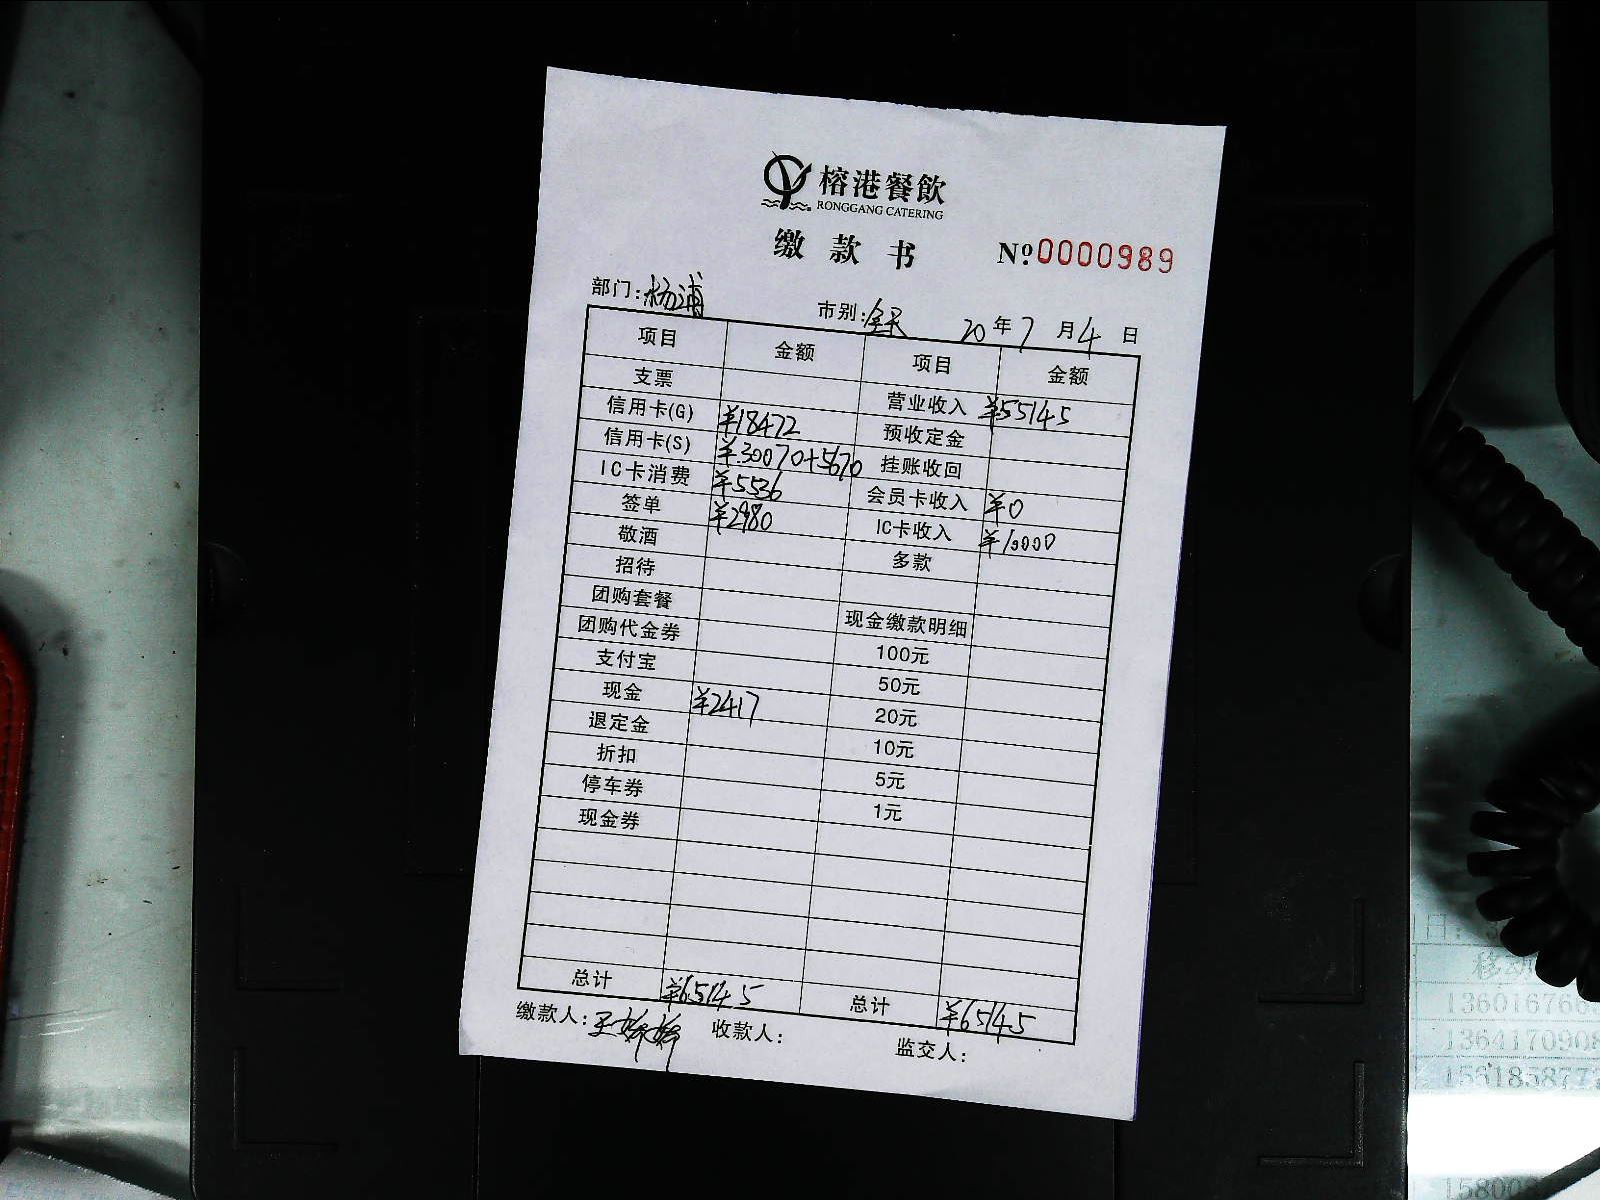 榕港餐飲
RONGGANG CATERING
缴款书 №0000989
部门:杨浦 市别:全天 20年7月4日
项目 金额 项目 金额
支票 营业收入 ¥55145
信用卡(G) ¥18472 预收定金
信用卡(S) ¥30070+5670 挂账收回
IC卡消费 ¥5536 会员卡收入 ¥0
签单 ¥2980 IC卡收入 ¥10000
敬酒 多款
招待
团购套餐 现金缴款明细
团购代金券 100元
支付宝 50元
现金 ¥2417 20元
退定金 10元
折扣 5元
停车券 1元
现金券
总计 ¥65145 总计 ¥65145
缴款人:王婷婷 收款人: 监交人:
日:
移动
136016766
1364170908
1561858777
15800